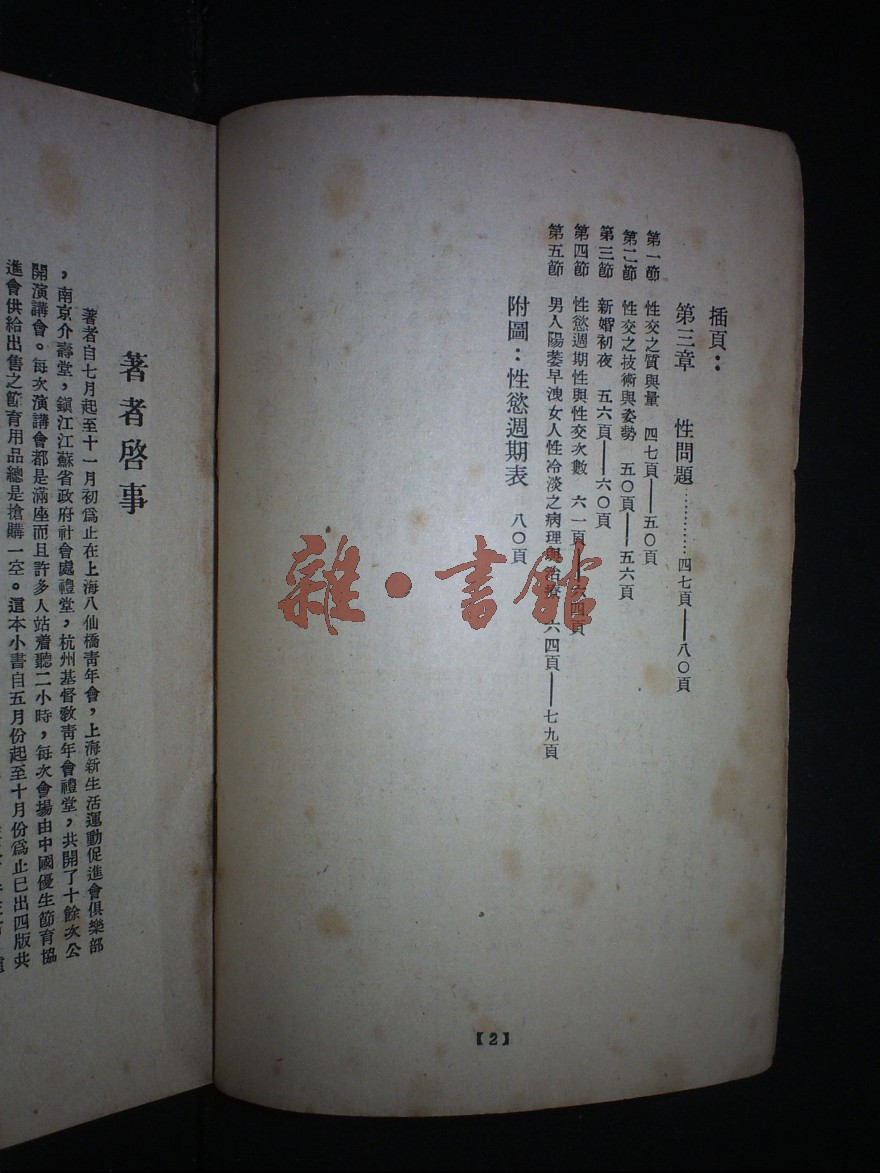 插頁：
第三章　性問題…………四七頁——八〇頁
第一節　性交之質與量　四七頁——五〇頁
第二節　性交之技術與姿勢　五〇頁——五六頁
第三節　新婚初夜　五六頁——六〇頁
第四節　性慾週期性與性交次數　六一頁——六四頁
第五節　男人陽萎早洩女人性冷淡之病理與治療　六四頁——七九頁
附圖：性慾週期表　八〇頁
【2】
著者啓事
著者自七月起至十一月初爲止在上海八仙橋靑年會，上海新生活運動促進會俱樂部
，南京介壽堂，鎭江江蘇省政府社會處禮堂，杭州基督敎靑年會禮堂，共開了十餘次公
開演講會。每次演講會都是滿座而且許多人站着聽二小時，每次會場由中國優生節育協
進會供給出售之節育用品總是搶購一空。這本小書自五月份起至十月份爲止已出四版共
雜·書館